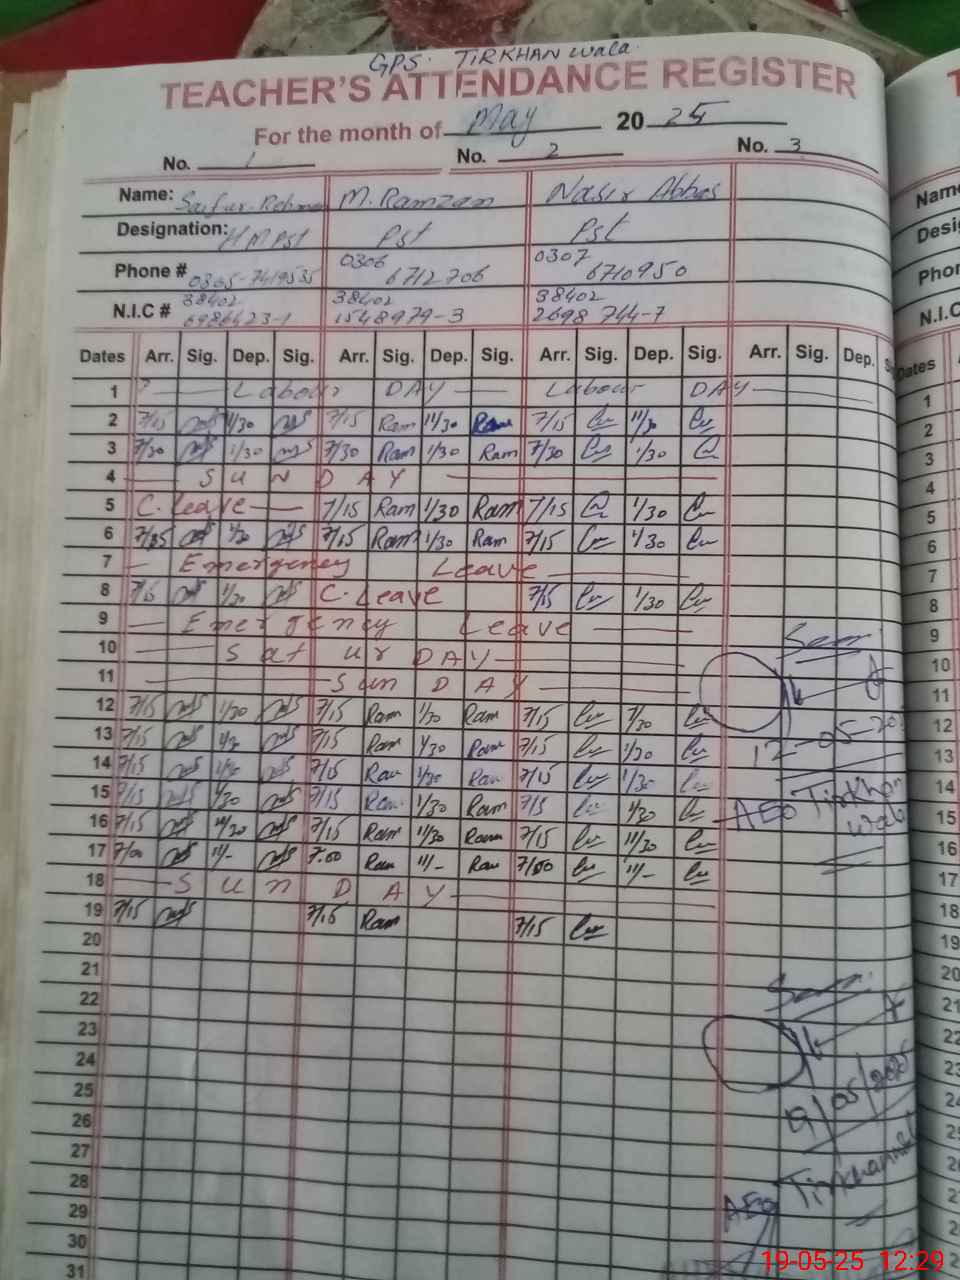 GPS. TIRKHAN wala.
TEACHER'S ATTENDANCE REGISTER
For the month of May 2025
No. 1 No. 2 No. 3
Name: Saif ur Rehman M. Ramzan Nasir Abbas
Designation: HM PST Pst Pst
Phone # 0305-7419535 0306 6712706 0307 6710950
N.I.C # 38402 6986423-1 38402 1548979-3 38402 2698744-7
Dates Arr. Sig. Dep. Sig. Arr. Sig. Dep. Sig. Arr. Sig. Dep. Sig. Arr. Sig. Dep.
1 Labour DAY Labour DAY
2 7/15 1/30 7/15 Ram 11/30 Ram 7/15 11/30
3 7/30 1/30 7/30 Ram 1/30 Ram 7/30 1/30
4 SUNDAY
5 C. Leave 7/15 Ram 1/30 Ram 7/15 1/30
6 1/30 7/15 Ram 1/30 Ram 7/15 1/30
7 Emergency Leave
8 7/15 1/30 C. Leave 7/15 1/30
9 Emergency Leave
10 Saturday
11 Sunday
12 7/15 1/30 7/15 Ram 1/30 Ram 7/15 1/30
13 7/15 1/30 7/15 Ram 1/30 Ram 7/15 1/30
14 7/15 1/30 7/15 Ram 1/30 Ram 7/15 1/30
15 7/15 1/30 7/15 Ram 1/30 Ram 7/15 1/30
16 7/15 11/30 7/15 Ram 11/30 Ram 7/15 11/30
17 7/00 11/- 7.00 Ram 11/- Ram 7/00 11/-
18 SUNDAY
19 7/15 7/15 Ram 7/15
20
21
22
23
24
25
26
27
28
29
30
31
Seen
12-05-20
AEO Tirkhan wala
Seen
19/05/2025
AEO Tirkhanwala
19-05-25 12:29